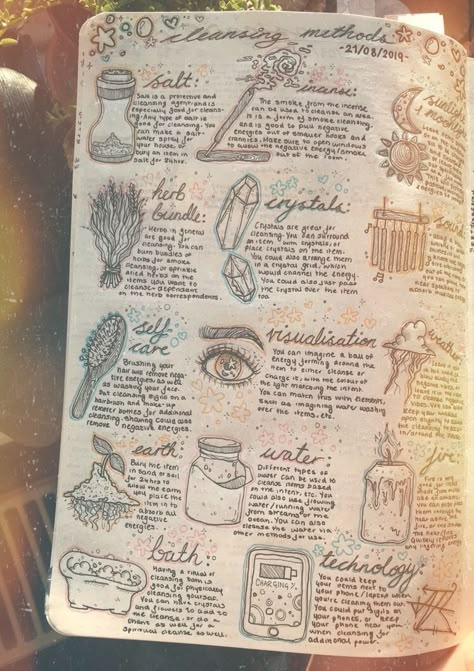 cleansing methods
-21/08/2019-
salt:
Salt is a protective and
cleansing agent and is
especially good for cleans-
ing. Any type of salt is
good for cleansing. You
can make a salt
water spray for
your house, or
bury an item in
salt for 24hrs.
incense:
The smoke from the incense
can be used to cleanse an area.
It is a form of smoke cleansing,
and is good to pull negative
energies out of smaller nooks and
crannies. Make sure to open windows
to allow the negative energy/smoke
out of the room.
herb
bundle:
Herbs in general
are good for
cleansing. You can
burn bundles of
herbs for smoke
cleansing, or sprinkle
dried herbs on the
items you want to
cleanse - dependant
on the herb correspondences.
crystals:
Crystals are great for
cleansing. You can surround
an item with crystals, or
place crystals on the item.
You could also arrange them
in a crystal grid, which
would channel the energy.
You could also just pass
the crystal over the item
too.
self
care
Brushing your
hair will remove nega-
tive energies, as well
as washing your face.
Put cleansing sigils on a
hairbrush and make-up
remover bottles for additional
cleansing. Shaving could also
remove negative energies.
visualisation
You can imagine a ball of
energy forming around
the item to either cleanse or
charge it, with the colour of
the light matching the intent.
You can match this with elements,
such as imagining water washing
over the items, etc.
weather
earth:
Bury the item
in sand or soil
for 24hrs to
allow the earth
you place the
item in to
absorb all
negative
energies.
water:
Different types of
water can be used to
cleanse items based
on the intent, etc. You
could also use flowing
water/running water
from streams or the
ocean. You can also
cleanse the water via
other methods for use.
fire:
bath:
Having a ritual of
cleansing bath is
good for physically
cleansing yourself.
You can have crystals
and flowers to add to
the cleanse, or do a
chant as well for a
spiritual cleanse as well.
CHARGING
technology:
You could keep
your items next to
your phone/laptop when
you're cleansing them out.
You could put sigils on
your phones, or keep
your phone near you
when cleansing for
additional power.